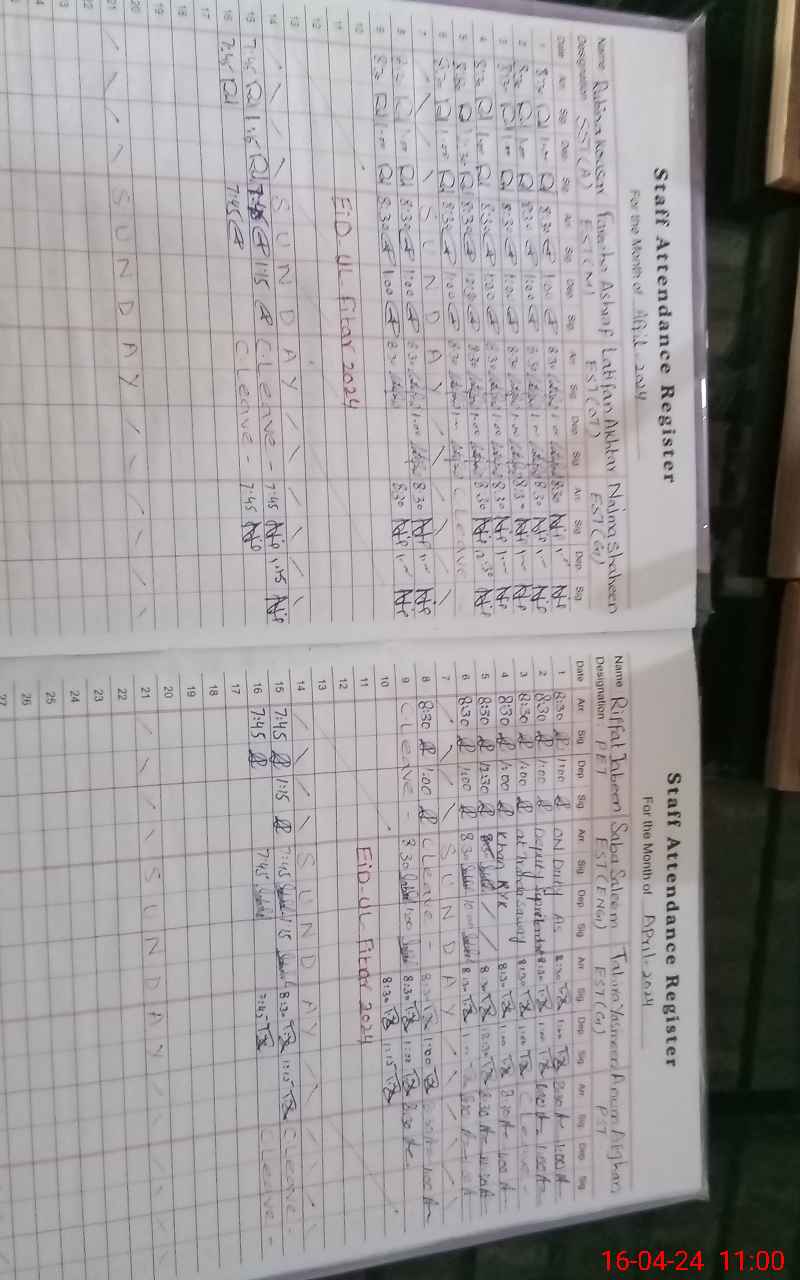 Staff Attendance Register
For the Month of April-2024
Name Rubina Kousar Farecha Ashraf Latifan Akhtar Najma Shaheen
Designation SST(A) EST(M) EST(OT) EST(G)
Date Arr Sig Dep Sig Arr Sig Dep Sig Arr Sig Dep Sig Arr Sig Dep Sig
1 8:30 1:00 8:30 1:00 8:30 1:00 8:30
2 8:30 1:00 8:30 1:00 8:30 8:30
3 8:30 1:00 8:30 1:00 8:30 1:00 8:30
4 8:30 1:00 8:30 1:00 8:30 1:00 8:30
5 8:30 12:30 8:30 12:30 8:30 1:00 8:30 12:30
6 8:30 1:00 8:30 1:00 8:30 C Leave
7 SUNDAY
8 8:30 1:00 8:30 1:00 8:30 1:00 8:30
9 8:30 1:00 8:30 1:00 8:30 8:30
10
11 EiD-UL Fitar 2024
12
13
14 SUNDAY
15 7:45 1:15 7:45 1:15 C Leave - 7:45 1:15
16 7:45 7:45 C Leave - 7:45
17
18
19
20
21 SUNDAY
22
23
24
Staff Attendance Register
For the Month of April-2024
Name Riffat Jabeen Saba Saleem Tahira Yasmeen Anum Afghan
Designation PET EST(ENG) EST(G) PST
Date Arr Sig Dep Sig Arr Sig Dep Sig Arr Sig Dep Sig Arr Sig Dep Sig
1 8:30 1:00 ON Duty As 8:30 1:00 8:30 1:00
2 8:30 1:00 Deputy 8:30 1:00 8:30 1:00
3 8:30 1:00 at 8:30 1:00 C Leave -
4 8:30 1:00 Khan 8:30 1:00 8:30 1:00
5 8:30 12:30 8:30 12:30 8:30
6 8:30 1:00 8:30 8:30 8:30
7 SUNDAY
8 8:30 1:00 C Leave - 8:30 1:00 8:30 1:00
9 C Leave - 8:30 1:00 8:30 1:00 8:30
10 8:30 1:15
11 EiD-UL Fitar 2024
12
13
14 SUNDAY
15 7:45 1:15 7:45 1:15 8:30 1:15 C Leave -
16 7:45 7:45 7:45 C Leave -
17
18
19
20
21 SUNDAY
22
23
24
25
26
27
16-04-24 11:00